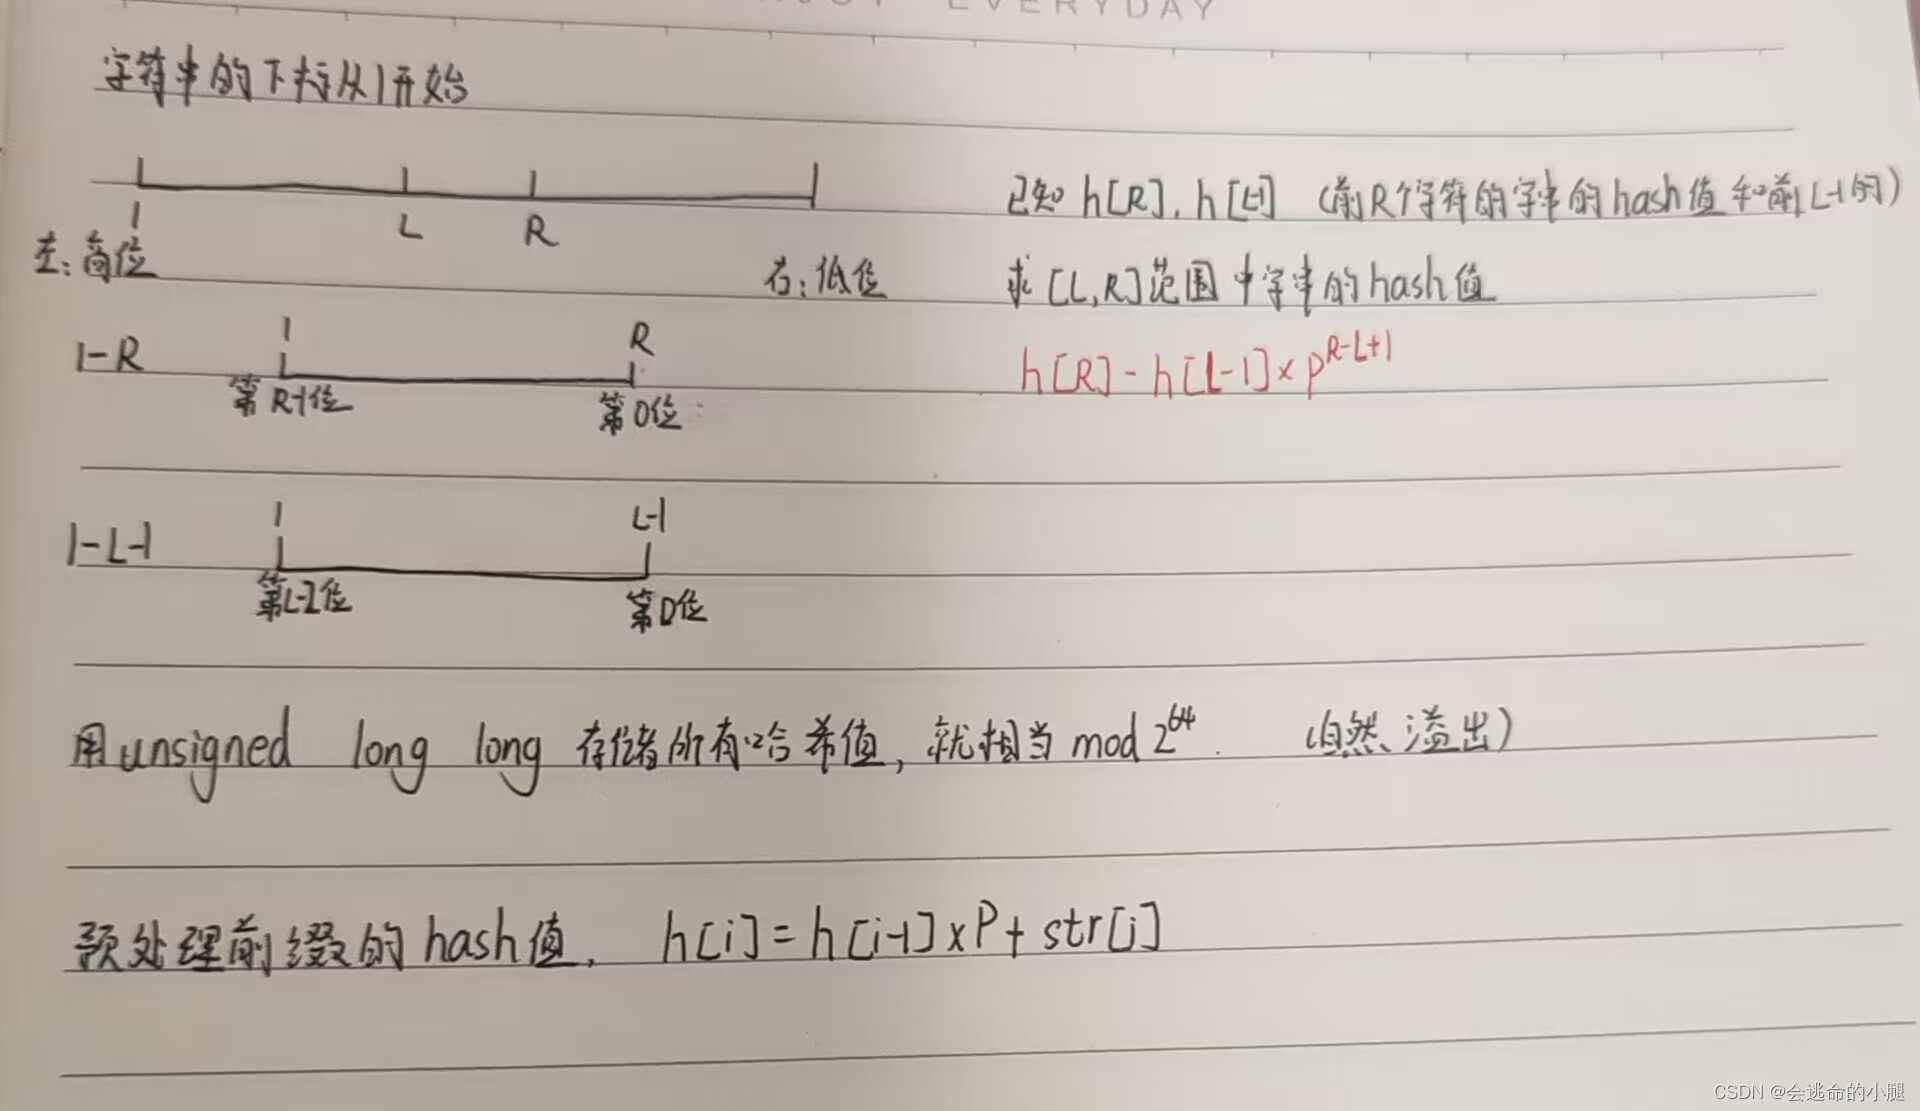 EVERYDAY
字符串的下标从1开始
1 L R
左:高位 右:低位
已知 h[R], h[L-1] (前R个字符的字串的hash值和前L-1的)
求[L,R]范围中字串的hash值
h[R] - h[L-1] × P^{R-L+1}
1-R 1 R
第R-1位 第0位
1-L-1 1 L-1
第L-2位 第0位
用unsigned long long 存储所有哈希值, 就相当 mod 2^{64}. (自然溢出)
预处理前缀的hash值, h[i] = h[i-1] × P + str[i]
CSDN @会逃命的小腿